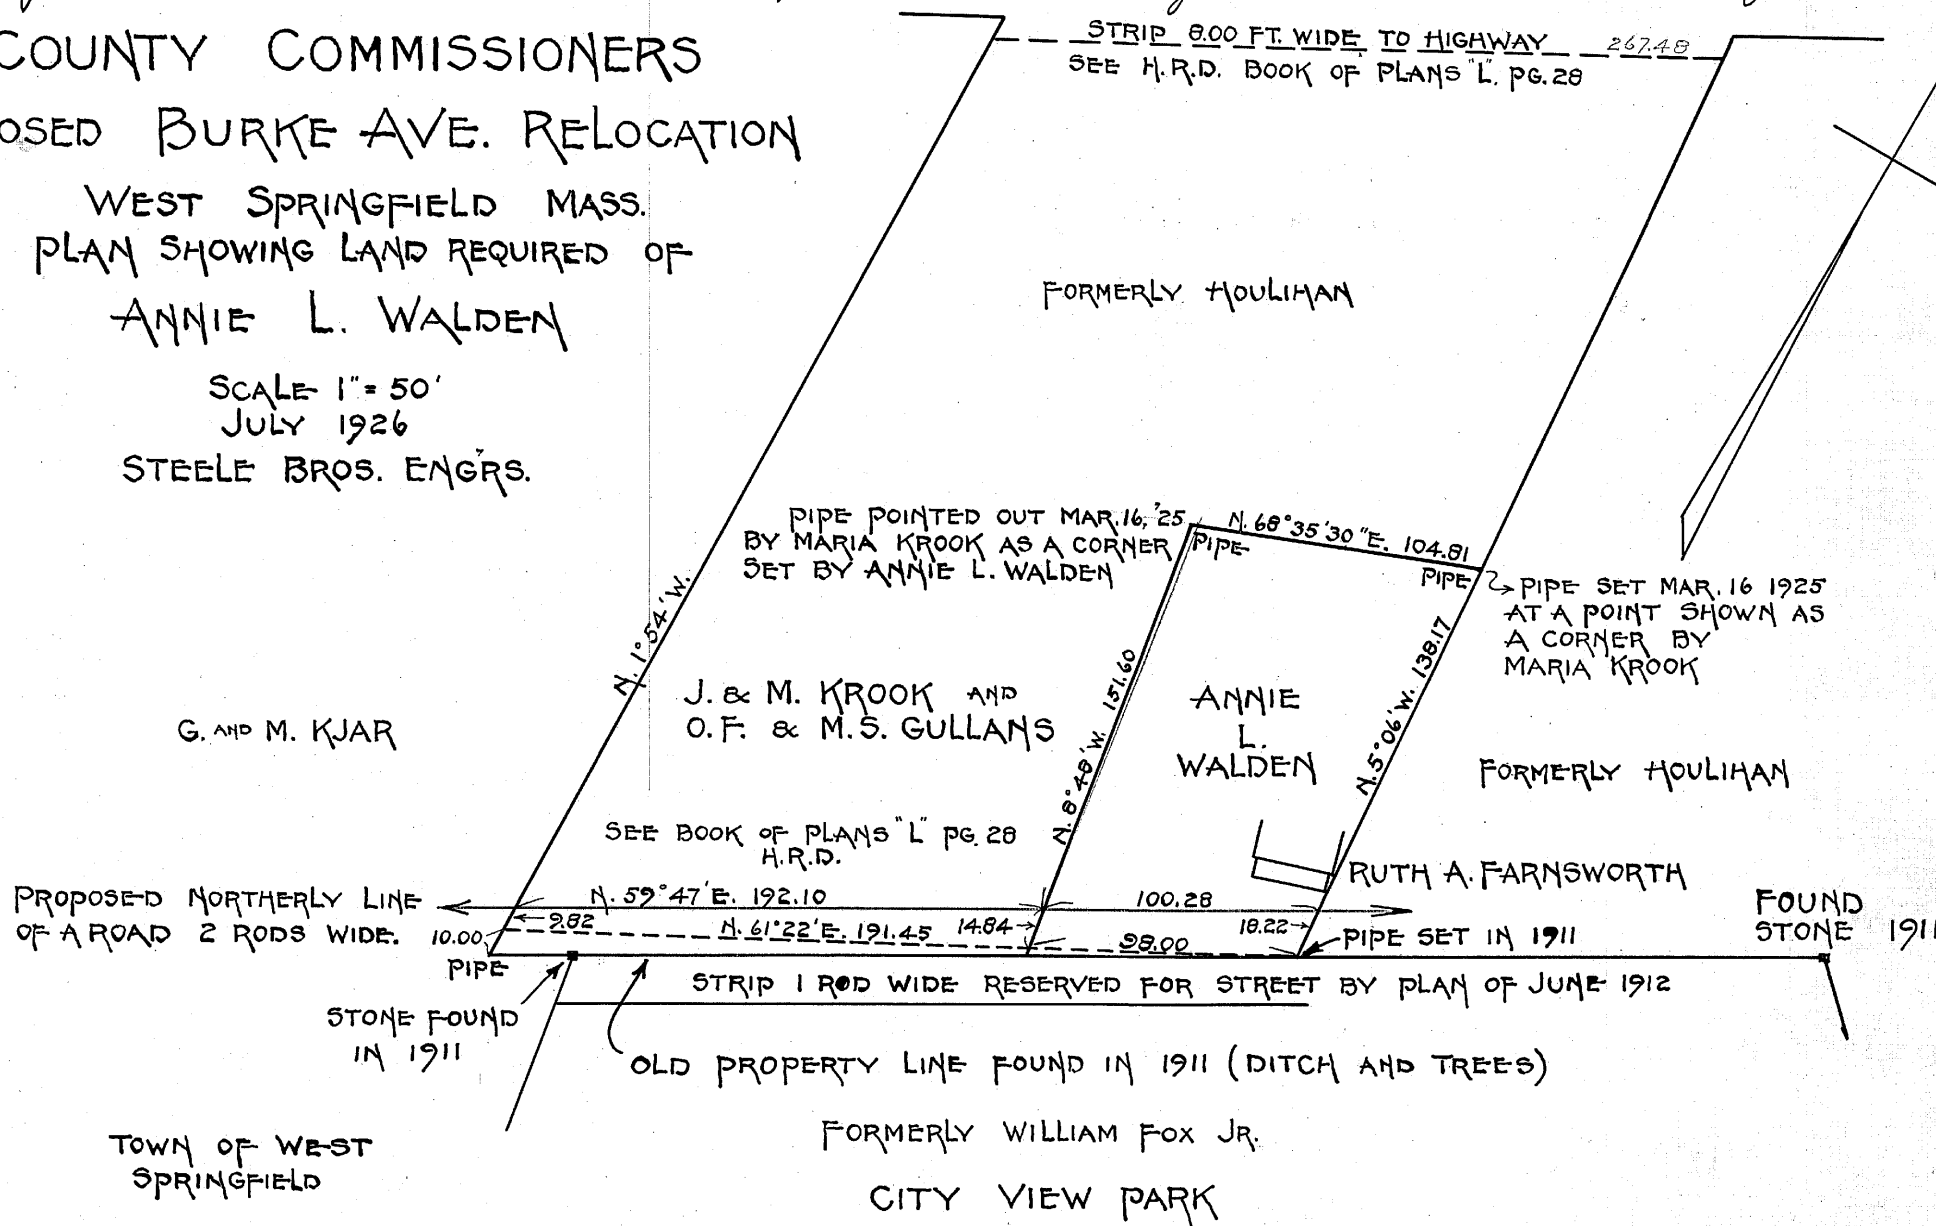 COUNTY COMMISSIONERS
OSED BURKE AVE. RELOCATION
WEST SPRINGFIELD MASS.
PLAN SHOWING LAND REQUIRED OF
ANNIE L. WALDEN
SCALE 1"= 50'
JULY 1926
STEELE BROS. ENG'RS.
STRIP 8.00 FT. WIDE TO HIGHWAY 267.48
SEE H.R.D. BOOK OF PLANS "L". PG. 28
FORMERLY HOULIHAN
PIPE POINTED OUT MAR. 16, '25
BY MARIA KROOK AS A CORNER
SET BY ANNIE L. WALDEN
PIPE
N. 68° 35' 30" E. 104.81
PIPE
PIPE SET MAR. 16 1925
AT A POINT SHOWN AS
A CORNER BY
MARIA KROOK
N. 1° 54' W.
J. & M. KROOK AND
O. F. & M. S. GULLANS
N. 8° 48' W. 151.60
ANNIE
L.
WALDEN
N. 5° 06' W. 138.17
G. AND M. KJAR
FORMERLY HOULIHAN
SEE BOOK OF PLANS "L" PG. 28
H.R.D.
RUTH A. FARNSWORTH
PROPOSED NORTHERLY LINE
OF A ROAD 2 RODS WIDE.
N. 59° 47' E. 192.10
100.28
10.00
9.82
N. 61° 22' E. 191.45
14.84
98.00
18.22
PIPE SET IN 1911
FOUND
STONE 1911
PIPE
STRIP 1 ROD WIDE RESERVED FOR STREET BY PLAN OF JUNE 1912
STONE FOUND
IN 1911
OLD PROPERTY LINE FOUND IN 1911 (DITCH AND TREES)
FORMERLY WILLIAM FOX JR.
TOWN OF WEST
SPRINGFIELD
CITY VIEW PARK